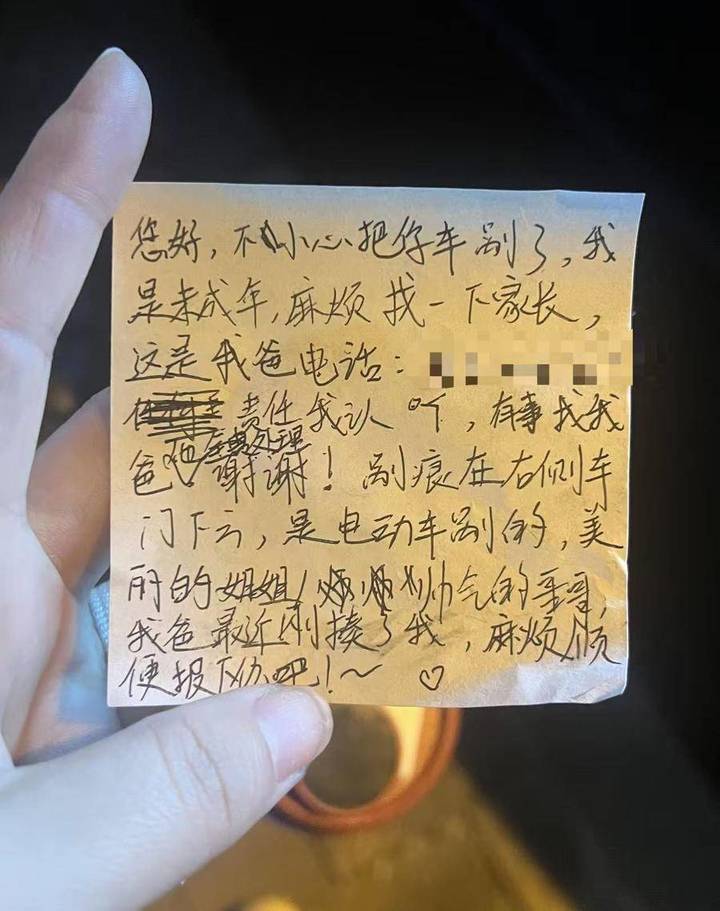 您好，不小心把你车剐了，我
是未成年，麻烦找一下家长，
这是我爸电话：
责任我认吖，有事找我
爸 他会处理 谢谢！剐痕在右侧车
门下方，是电动车剐的，美
丽的姐姐/帅气的哥哥，
我爸最近刚揍了我，麻烦顺
便报下仇吧！～ ♡